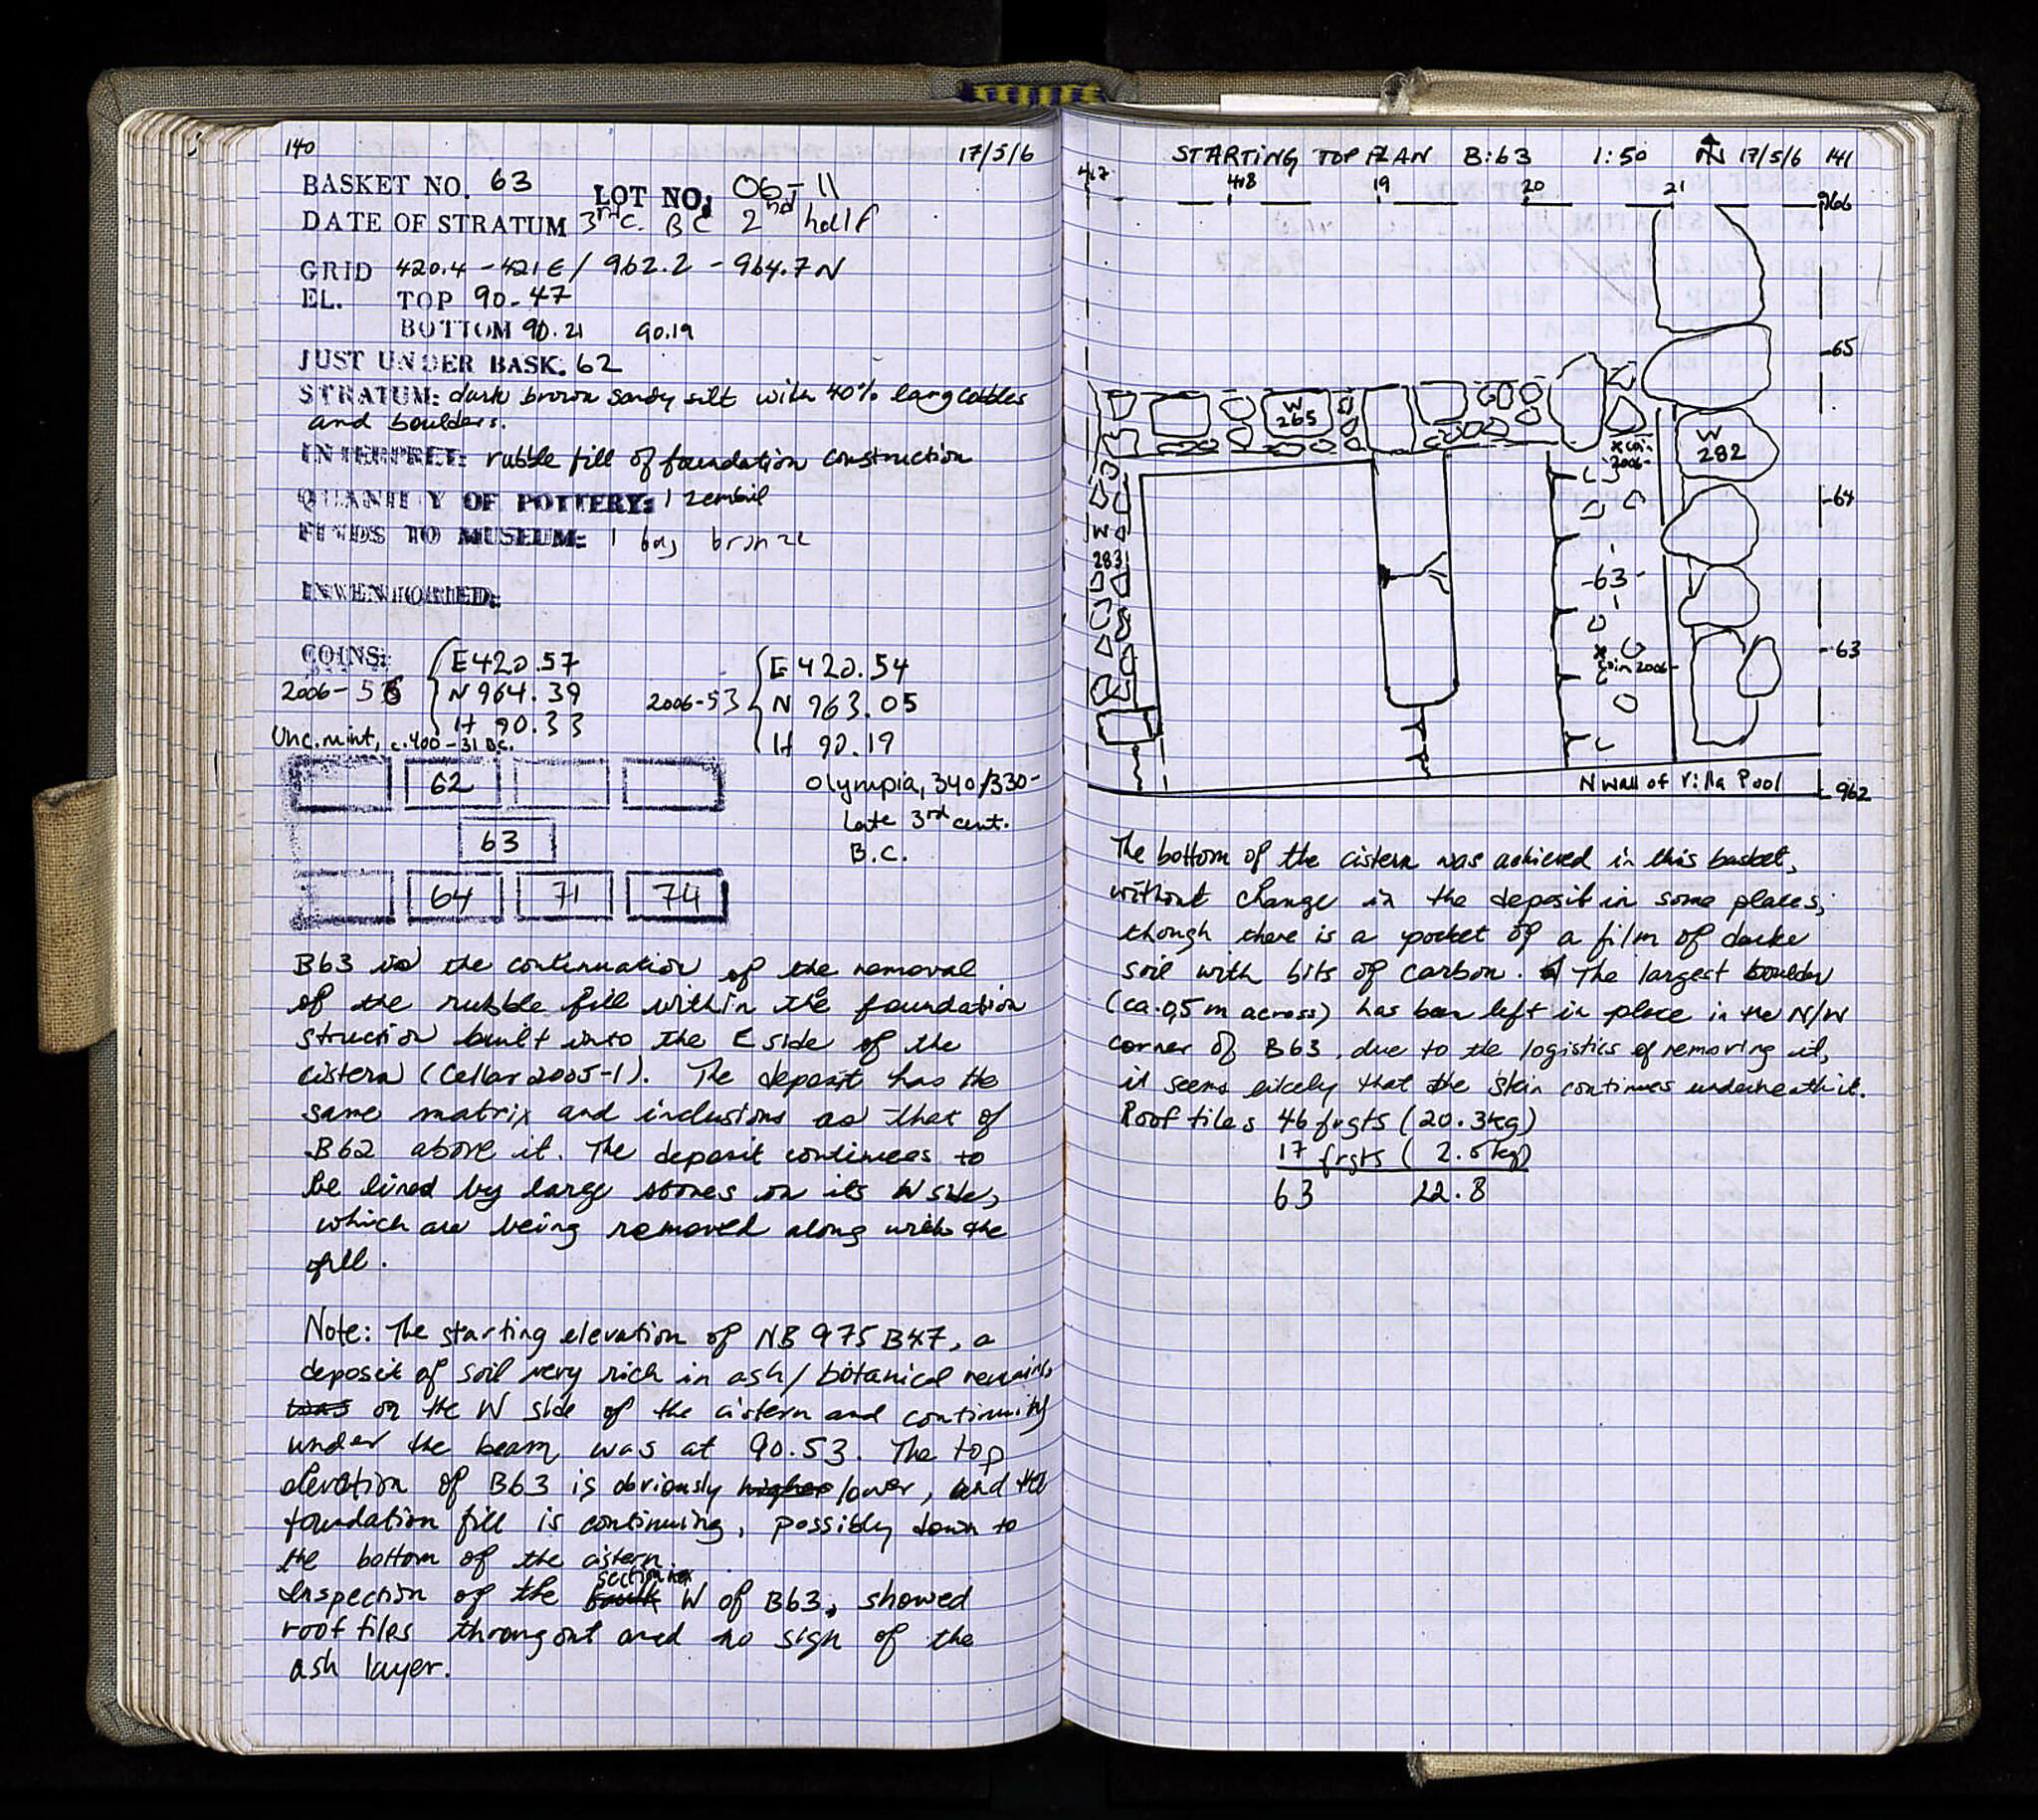 140 17/5/6
BASKET NO. 63 LOT NO: 06-11
DATE OF STRATUM 3rd c. BC 2nd half
GRID 420.4 - 421 E / 962.2 - 964.7 N
EL. TOP 90.47
BOTTOM 90.21 90.19
JUST UNDER BASK. 62
STRATUM: dark brown sandy silt with 40% large cobbles
and boulders.
INTERPRET: rubble fill of foundation construction
QUANITY OF POTTERY: 1 zembil
FINDS TO MUSEUM: 1 bag bronze
INVENTORIED:
COINS:
2006-56 { E 420.57 N 964.39 H 90.33
Unc. mint, c. 400-31 BC.
2006-53 { E 420.54 N 963.05 H 90.19
Olympia, 340/330-
Late 3rd cent.
B.C.
62
63
64 71 74
B63 is the continuation of the removal
of the rubble fill within the foundation
struction built into the E side of the
cistern (Cellar 2005-1). The deposit has the
same matrix and inclusions as that of
B62 above it. The deposit continues to
be lined by large stones on its W side,
which are being removed along with the
fill.
Note: The starting elevation of NB 975 B47, a
deposit of soil very rich in ash/botanical remains,
was on the W side of the cistern and continuing
under the beam was at 90.53. The top
elevation of B63 is obviously higher lower, and the
foundation fill is continuing, possibly down to
the bottom of the cistern.
section
Inspection of the baulk W of B63, showed
roof tiles througout and no sign of the
ash layer.
STARTING TOP PLAN B:63 1:50 N 17/5/6 141
417 418 19 20 21 966
65
W 265
W 282
x coin 2006-
64
W 283
-63-
x coin 2006-
63
N wall of Villa Pool 962
The bottom of the cistern was achieved in this basket,
without change in the deposit in some places,
though there is a pocket of a film of darke
soil with bits of carbon. The largest boulder
(ca. 0,5 m across) has been left in place in the N/W
corner of B63, due to the logistics of removing it,
it seems likely that the skin continues underneath it.
Roof tiles 46 frgts (20.3kg)
17 frgts (2.5kg)
63 22.8